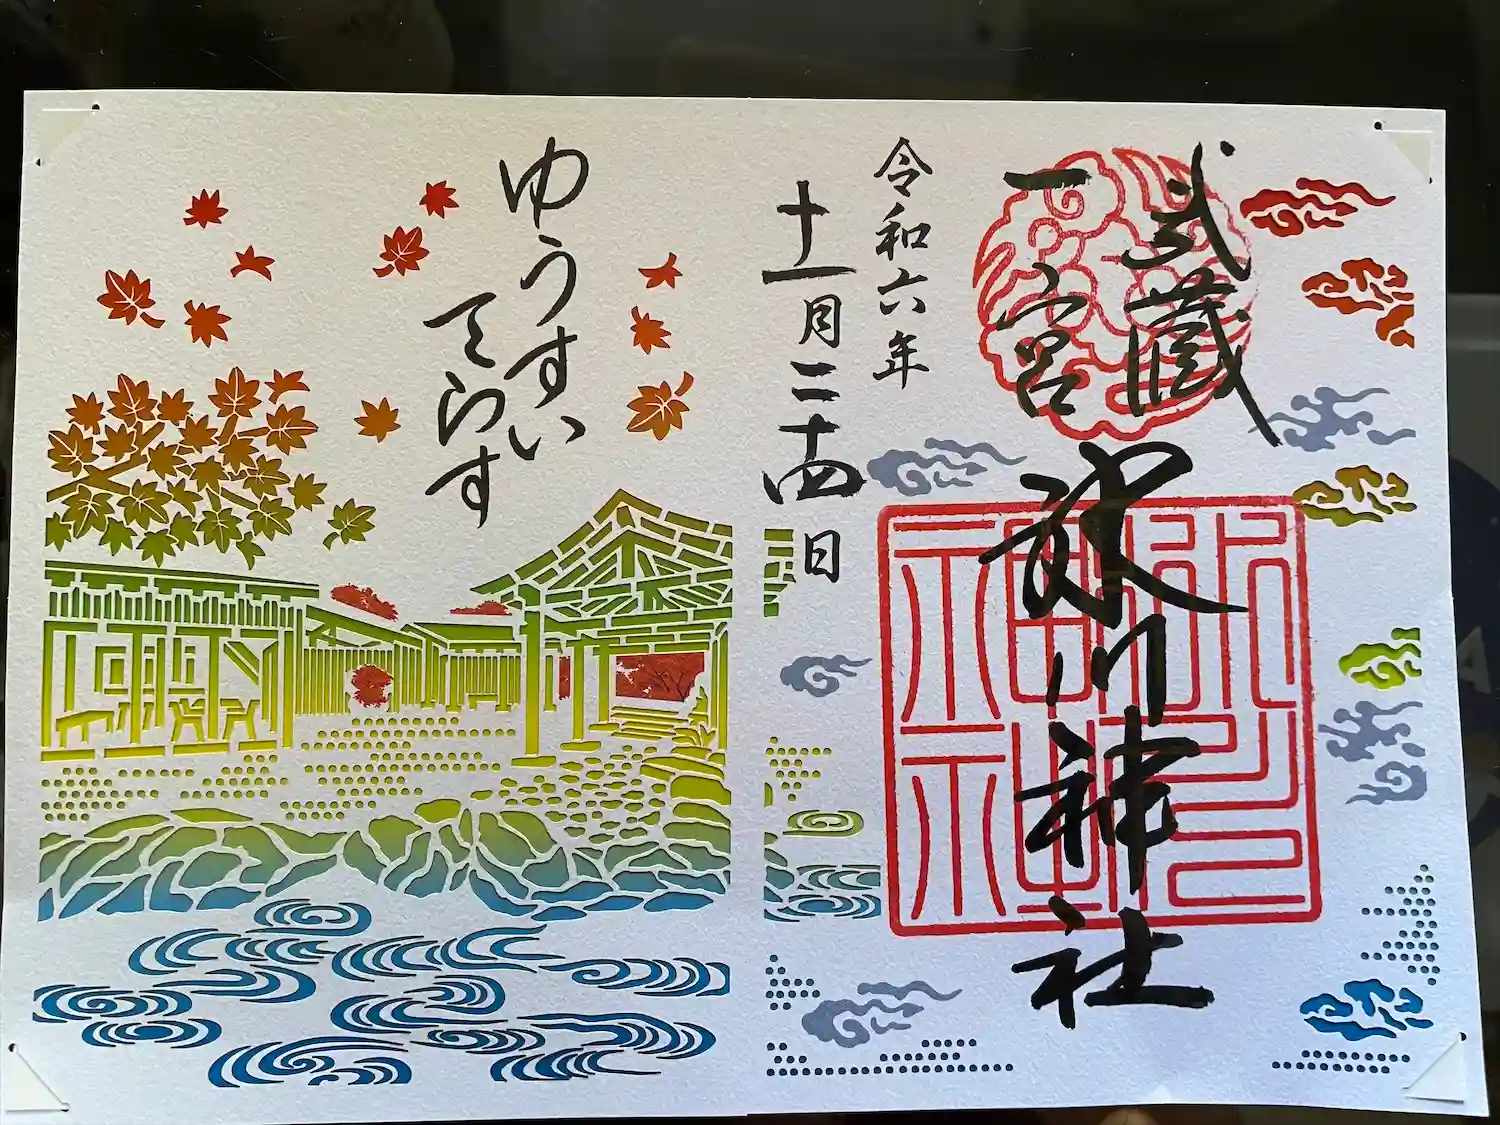 武蔵
一宮
氷川神社
令和六年
十一月二十四日
ゆうすい
てらす